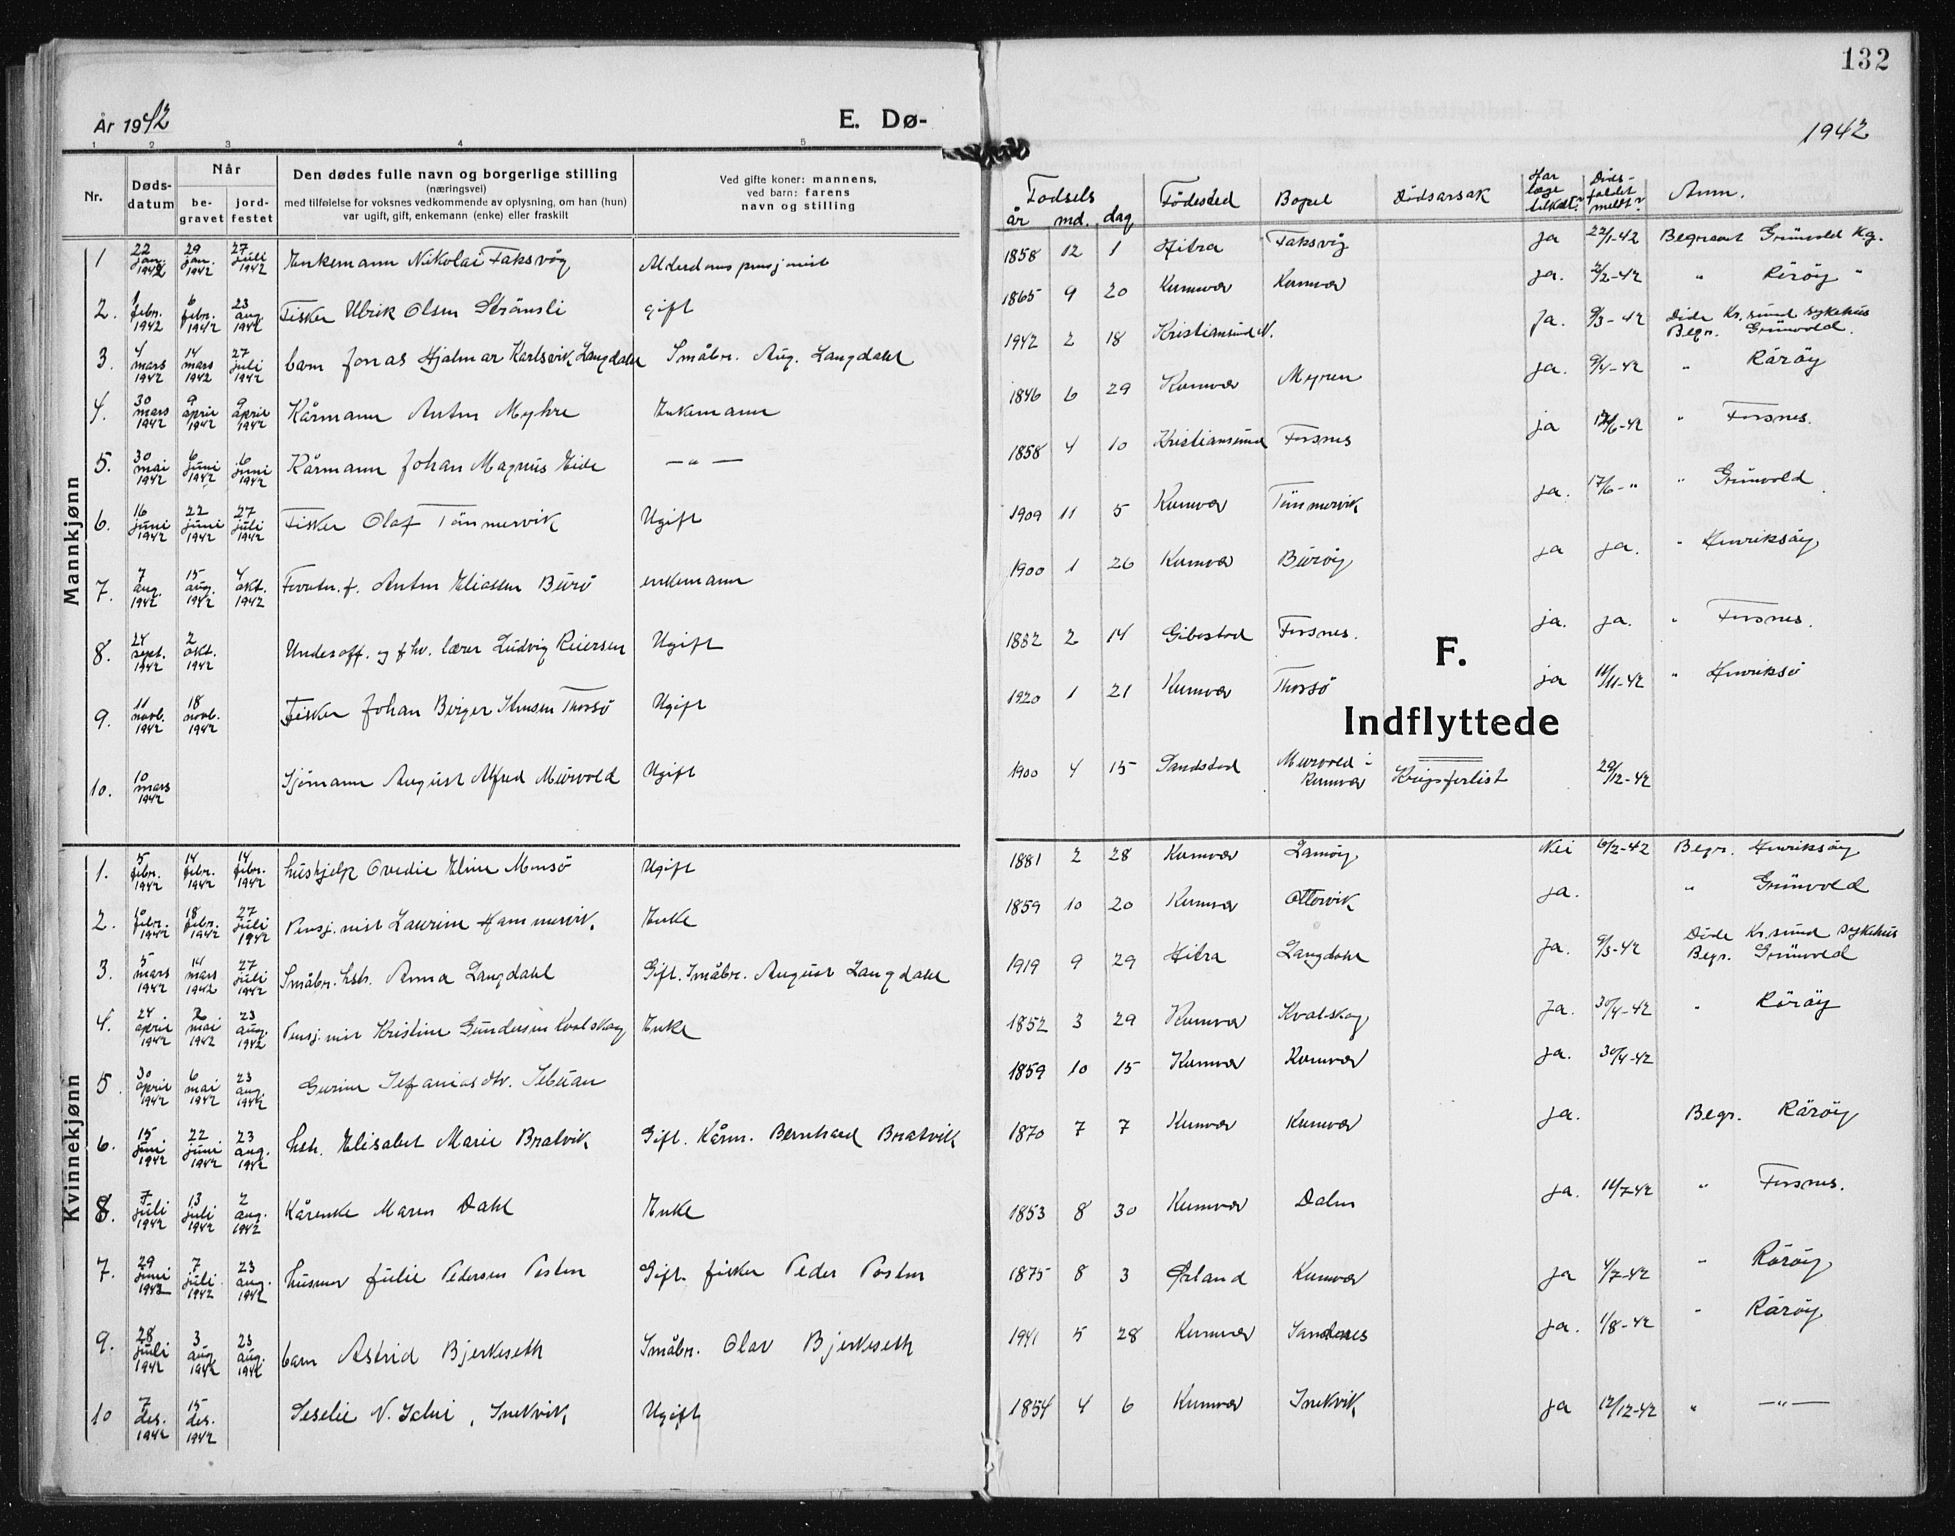 132
År 1942
E. Dø-
1942
1 2 3 4 5
Nr.
Døds-
datum
Når
be-
gravet
jord-
festet
Den dødes fulle navn og borgerlige stilling
(næringsvei)
med tilføielse for voksnes vedkommende av oplysning, om han (hun)
var ugift, gift, enkemann (enke) eller fraskilt
Ved gifte koner: mannens,
ved barn: farens
navn og stilling
Fødsels
år md. dag
Fødested
Bopel
Dødsårsak
Har
læge
tilkalt?
Døds-
faldet
meldt?
Anm.
Mannkjønn
1 22 jan. 1942 29 jan. 1942 27 juli 1942 Enkemann Nikolai Faksvåg Alderdomspensjonist 1858 12 1 Hitra Faksvåg ja 22/1-42 Begravet Grünvold Kg.
2. 1 febr. 1942 6 febr. 1942 23 aug. 1942 Fisker Ulrik Olsen gift 1865 9 20 Kvenvær Kvenvær ja. 2/2-42 " Röröy "
3. 4 mars 1942 14 mars 1942 27 juli 1942 barn Jonas Hjalmar Karlsvik Langdahl Småbr. Aug. Langdahl 1942 2 18 Kristiansund N. ja. 9/3-42 Döde Kr.sund sykehus Begr. Grünvold.
4. 30 mars 1942 9 april 1942 9 april 1942 Kårmann Anton Myhre Enkemann 1846 6 29 Kvenvær Myren ja. 9/4-42 " Röröy
5. 30 mai 1942 6 juni 1942 6 juni 1942 Kårmann Johan Magnus Eide — " — 1858 4 10 Kristiansund Forsnes ja /6-42 " Forsnes.
6. 16 juni 1942 22 juni 1942 27 juli 1942 Fisker Olaf Tömmervik Ugift 1909 11 5 Kvenvær Tömmervik ja. 17/6-" " Grünvold
7. 7 aug. 1942 15 aug. 1942 4 okt. 1942 Forretn.f. Anton Eliassen Burö enkemann 1900 1 26 Kvenvær Buröy ja ja. " Henriksöy
8. 24 sept. 1942 2 okt. 1942 Underoff. og fhv. lærer Ludvig Reiersen Ugift 1882 2 14 Gibostad Forsnes. ja. ja. " Forsnes.
9. 11 novb. 1942 18 novb. 1942 Fisker Johan Birger Thorsö Ugift 1920 1 21 Kvenvær Thorsö ja 14/11-42 " Henriksö
10. 10 mars 1942 Sjömann August Alfred Murvold Ugift 1900 4 15 Sandstad Murvold i Kvenvær Krigsforlist 29/12-42
F.
Indflyttede
Kvinnekjønn
1. 5 febr. 1942 14 febr. 1942 14 febr. 1942 hushjelp Ovedie Eline Monsö Ugift 1881 2 28 Kvenvær Lamöy Nei 6/2-42 Begr. Henriksöy
2. 10 febr. 1942 18 febr. 1942 27 juli 1942 Pensj.nist Laurine Hammervik. Enke 1859 10 20 Kvenvær Ottervik ja. " Grünvold
3. 5 mars 1942 14 mars 1942 27 juli 1942 Småbr. hstr. Anna Langdahl Gift. Småbr. August Langdahl 1919 9 29 Hitra Langdahl ja. 9/3-42 Döde Kr.sund sykehus Begr. Grünvold
4. 24 april 1942 2 mai 1942 23 aug. 1942 Pensj.nist Kristine Gundersen Kvalskag Enke 1852 3 29 Kvenvær Kvalskag ja. 30/4-42 " Röröy
5. 30 april 1942 6 mai 1942 23 aug. 1942 Gurine Sefaniasdtr. 1859 10 15 Kvenvær Kvenvær ja. 30/4-42
6. 15 juni 1942 22 juni 1942 23 aug. 1942 hstr. Elisabet Marie Bratvik Gift. Kårm. Bernhard Bratvik 1870 7 7 Kvenvær Kvenvær ja. Begr. Röröy
8. 7 juli 1942 13 juli 1942 2 aug. 1942 Kårenke Maren Dahl Enke 1853 8 30 Kvenvær Dalen ja. 14/7-42 " Forsnes.
7. 29 juni 1942 7 juli 1942 23 aug. 1942 husmor Julie Pedersen Posten Gift. fisker Peder Posten 1875 8 3 Örland Kvenvær ja 4/7-42 " Röröy
9. 28 juli 1942 3 aug 1942 23 aug. 1942 barn Astrid Bjerkeseth Småbr. Olav Bjerkeseth 1941 5 28 Kvenvær Sandnes ja. 1/8-42 " Röröy
10 7 des. 1942 15 des. 1942 Seselie N. , Snekvik Ugift 1854 4 6 Kvenvær Snekvik ja 12/12-42 " — " —